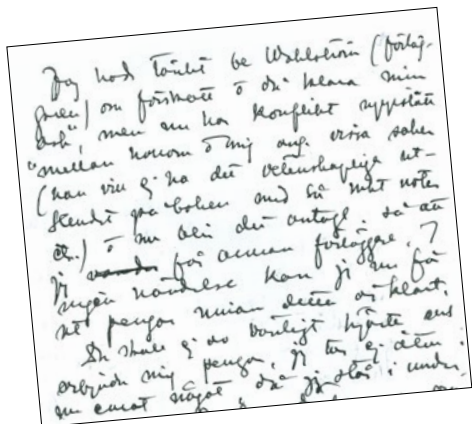 Jag hade tänkt be Wahlström (förläg-
garen) om förskott o då klara min
men nu har konflikt uppstått
mellan honom o mig ang. vissa saker
(han vill ej ha det vetenskapliga ut-
seendet på boken med så mkt noter
etc.) o nu blir det antagl. så att
jag får annan förläggare. I
ngn händelse kan jag nu få
pengar innan detta är klart.
Du skulle ej av vänligt hjärta ens
erbjuda mig pengar, jag tar ej dem.
nu något då jag står i under-